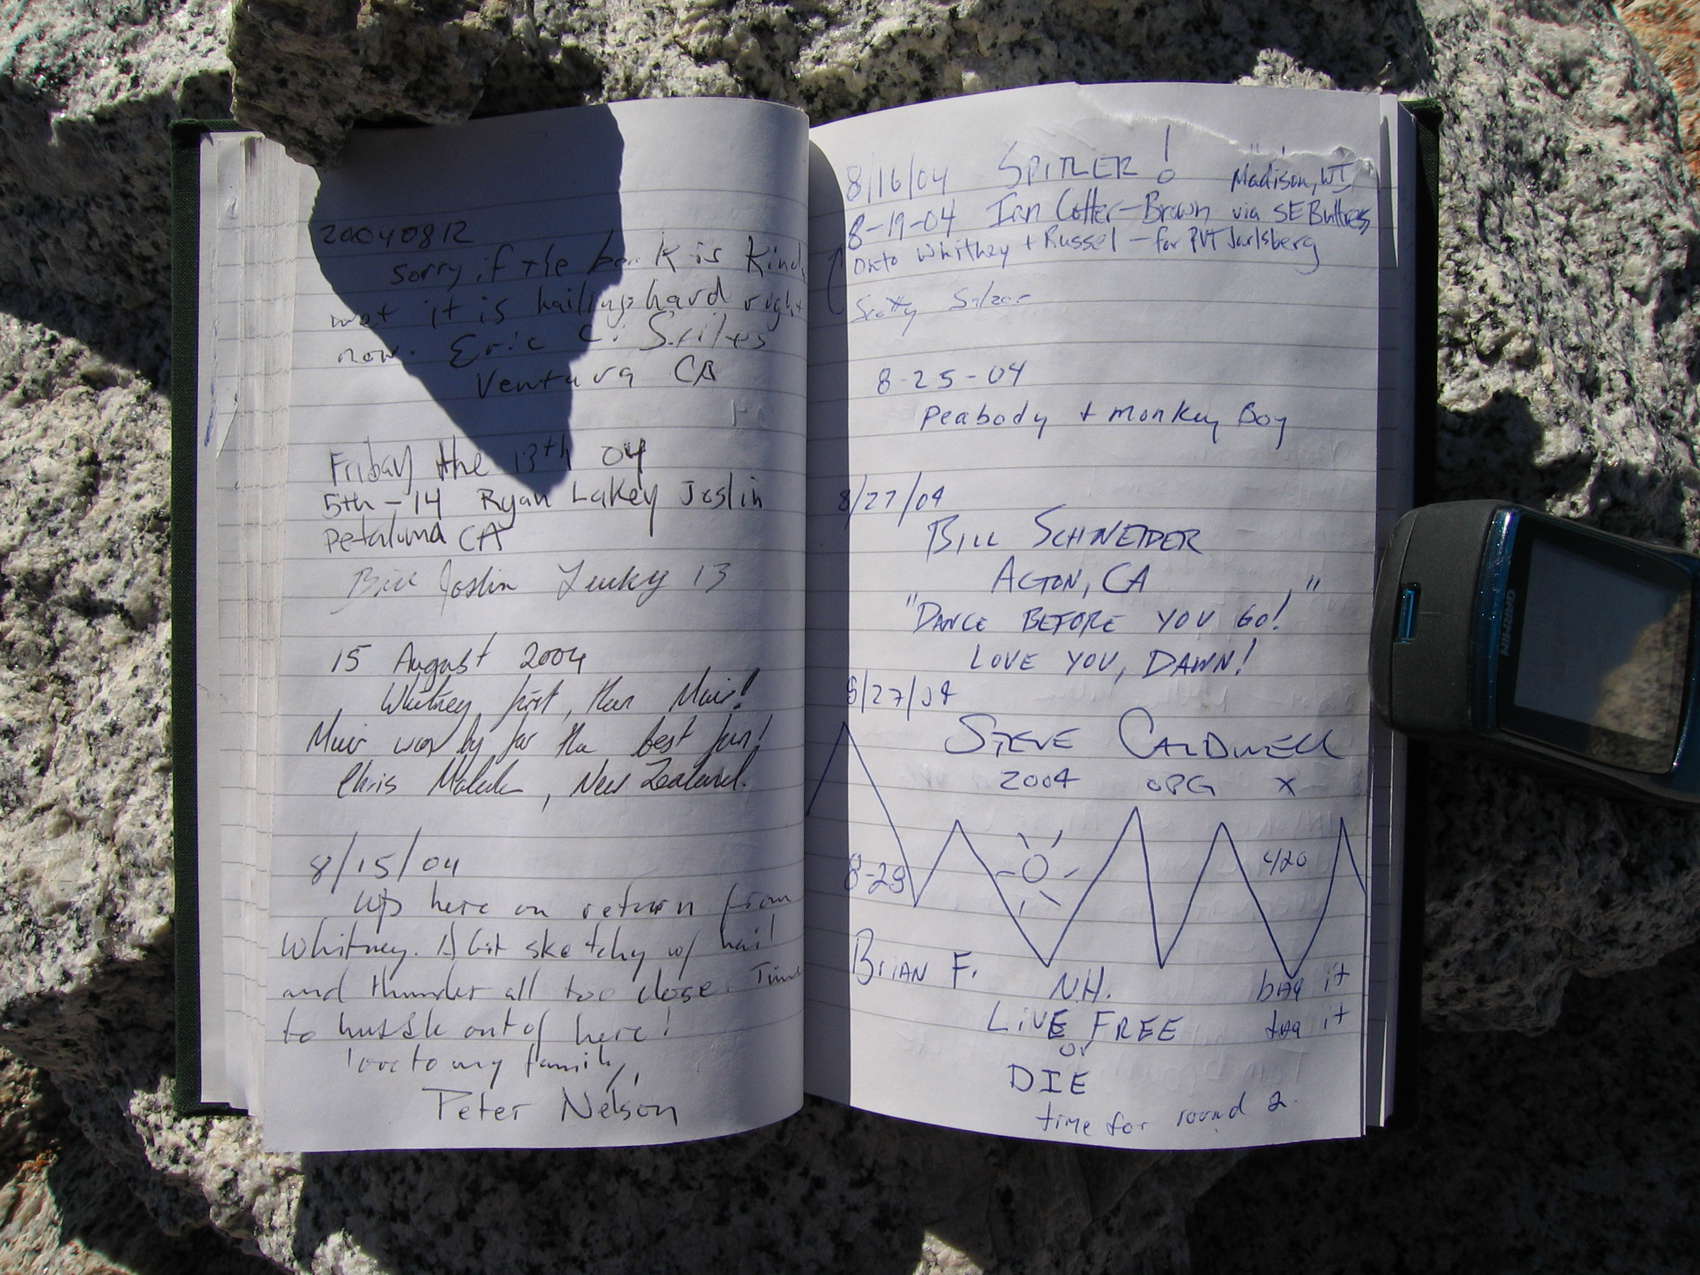 20040812
sorry if the book is kinda
wet it is hailing hard right
now. Eric C.
Ventura CA
Friday the 13th 04
5th-14 Ryan Lakey Joslin
Petaluma CA
Bill Joslin Lucky 13
15 August 2004
Whitney first, then Muir!
Muir was by far the best fun!
Chris, New Zealand.
8/15/04
Up here on return from
Whitney. A bit sketchy w/ hail
and thunder all too close. Time
to hussle out of here!
love to my family,
Peter Nelson
8/16/04 SPITLER! Madison, WI
8-19-04 Ian Cotter-Brown via SE Buttress
Onto Whitney + Russel - for PVT Jarlsberg
Scotty
8-25-04
Peabody + Monkey Boy
8/27/04
BILL SCHNEIDER
ACTON, CA
"DANCE BEFORE YOU GO!"
LOVE YOU, DAWN!
8/27/04
STEVE CALDWELL
2004 OPG X
8-28 4/20
BRIAN F. N.H. bag it
LIVE FREE tag it
or
DIE
time for round 2.
GARMIN